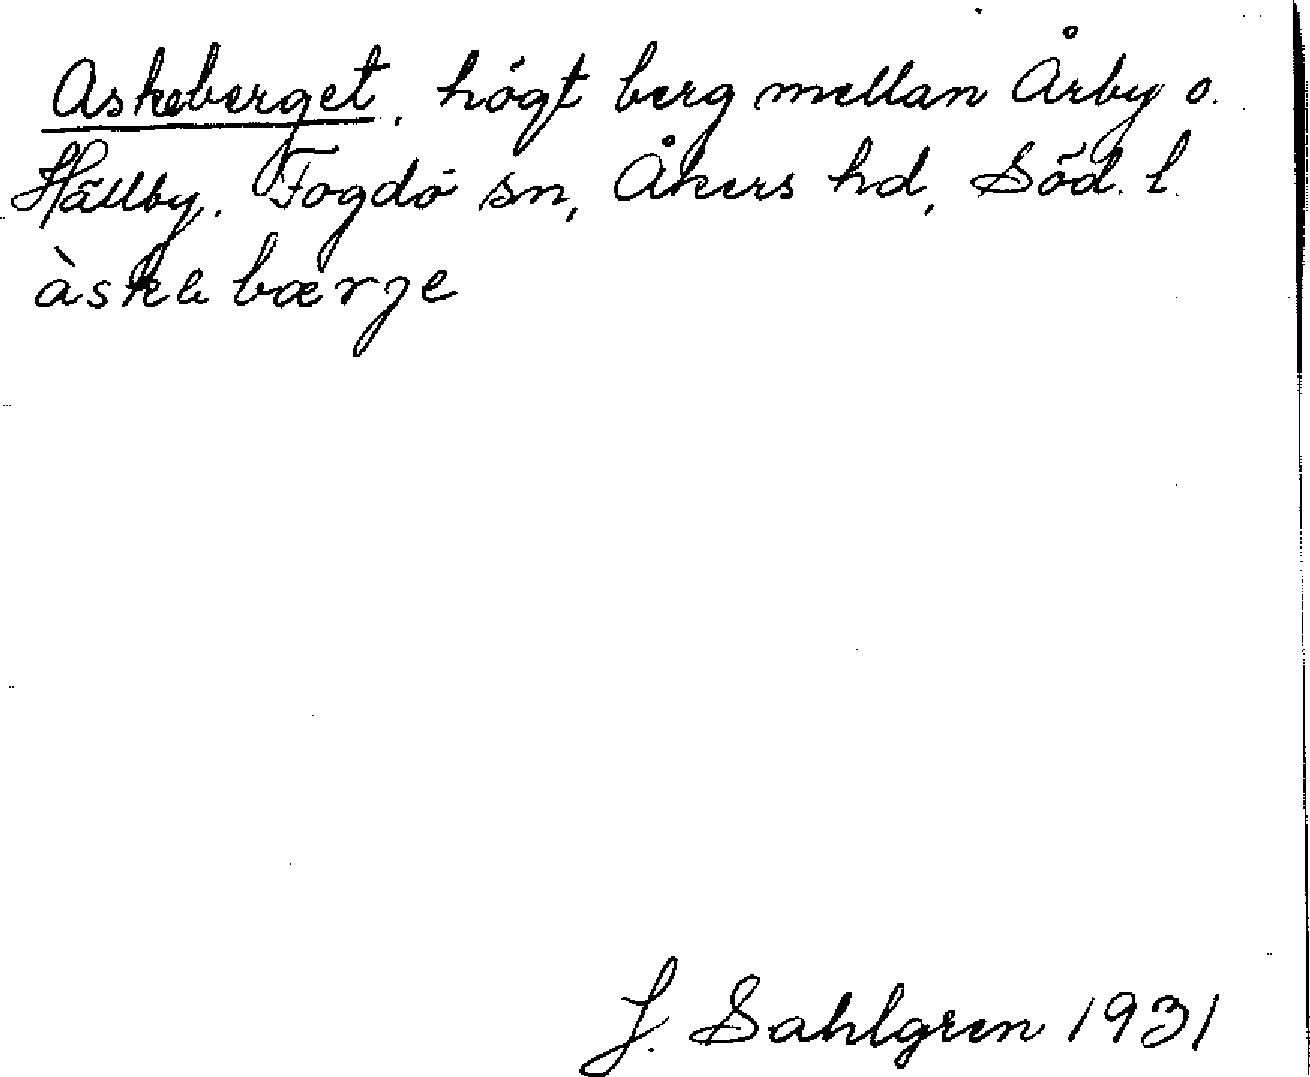 Askeberget. högt berg mellan Årby o.
Hällby. Fogdö sn, Åkers hd, Söd. l.
àske bærje
J. Sahlgren 1931